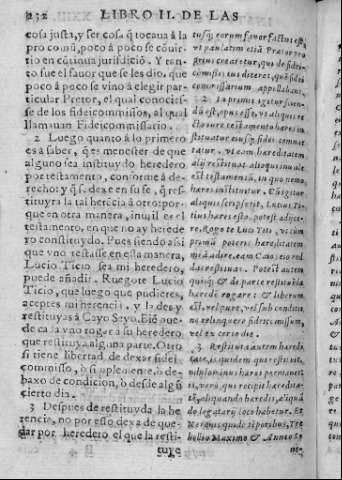 232 LIBRO II. DE LAS
cosa justa, y ser cosa q̃ tocaua à la
pro comũ, poco à poco se cõuir
tio en cõtinua jurisdiciõ. Y tan-
to fue el fauor que se les dio, que
poco à poco se vino à elegir par-
ticular Pretor, el qual conocies-
se de los fideicommissos, al qual
llamauan Fideicommissario.
2 Luego quanto à lo primero
es à saber, q̃ es menester de que
alguno sea instituydo heredero
por testamento, conforme à de-
recho: y q̃ s. dexe en su fe, q̃ res-
tituyra la tal herẽcia à otro: por
que en otra manera, inutil es el
testamento, en que no ay herede
ro constituydo. Pues siendo assi
que vno testasse en esta manera,
Lucio Ticio sea mi heredero,
puede añadir. Ruegote Lucio
Ticio, que luego que pudieres,
aceptes mi herencia, y la des y
restituyas à Cayo Seyo. Biẽ pue-
de cada vno rogar à su heredero,
que restituya alguna parte. Otro
si tiene libertad, de dexar fidei
commisso, ò simplemente, ò de-
baxo de condicion, ò desde algũ
cierto dia.
3 Despues de restituyda la he
rencia, no por esso dexa de que-
dar por heredero el que la resti-
tuye
tusq; eorum fauor factus est,
vt paulatim etiã Prætor pro
prius crearetur, qui de fidei-
commissis ius diceret, quẽ fidei
commissarium appellabant.
2 In primis igitur sciendũ
est, opus esse, vt aliquis re-
cto iure testamento hæres in-
stituatur, eiusq; fidei commit-
tatur, vt eam hæreditatem
alij restituat: alioqui inutile
est testamentũ, in quo nemo
hæres instituitur. Cũ igitur
aliquis scripserit, Lucius Ti-
tius hæres esto, potest adijce-
re, Rogo te Luci Titi, vt cum
primùm poteris hæreditatem
meã adire, eam Caio Seio red
das, restituas. Potest autem
quisq; & de parte restituẽda
hæredẽ rogare: & liberum
est, vel purè, vel sub conditio-
ne relinquere fideicommissum,
vel ex certo die.
3 Restituta autem hæredi-
tate, is quidem qui restituit,
nihilominus hæres permanet:
is, verò, qui recipit hæredita-
tẽ, aliquando hæredis, aliquã
do legatarij loco habetur. Et
Neronis quidẽ tẽporibus, Tre
bellio Maximo & Annæo Se-
ne-